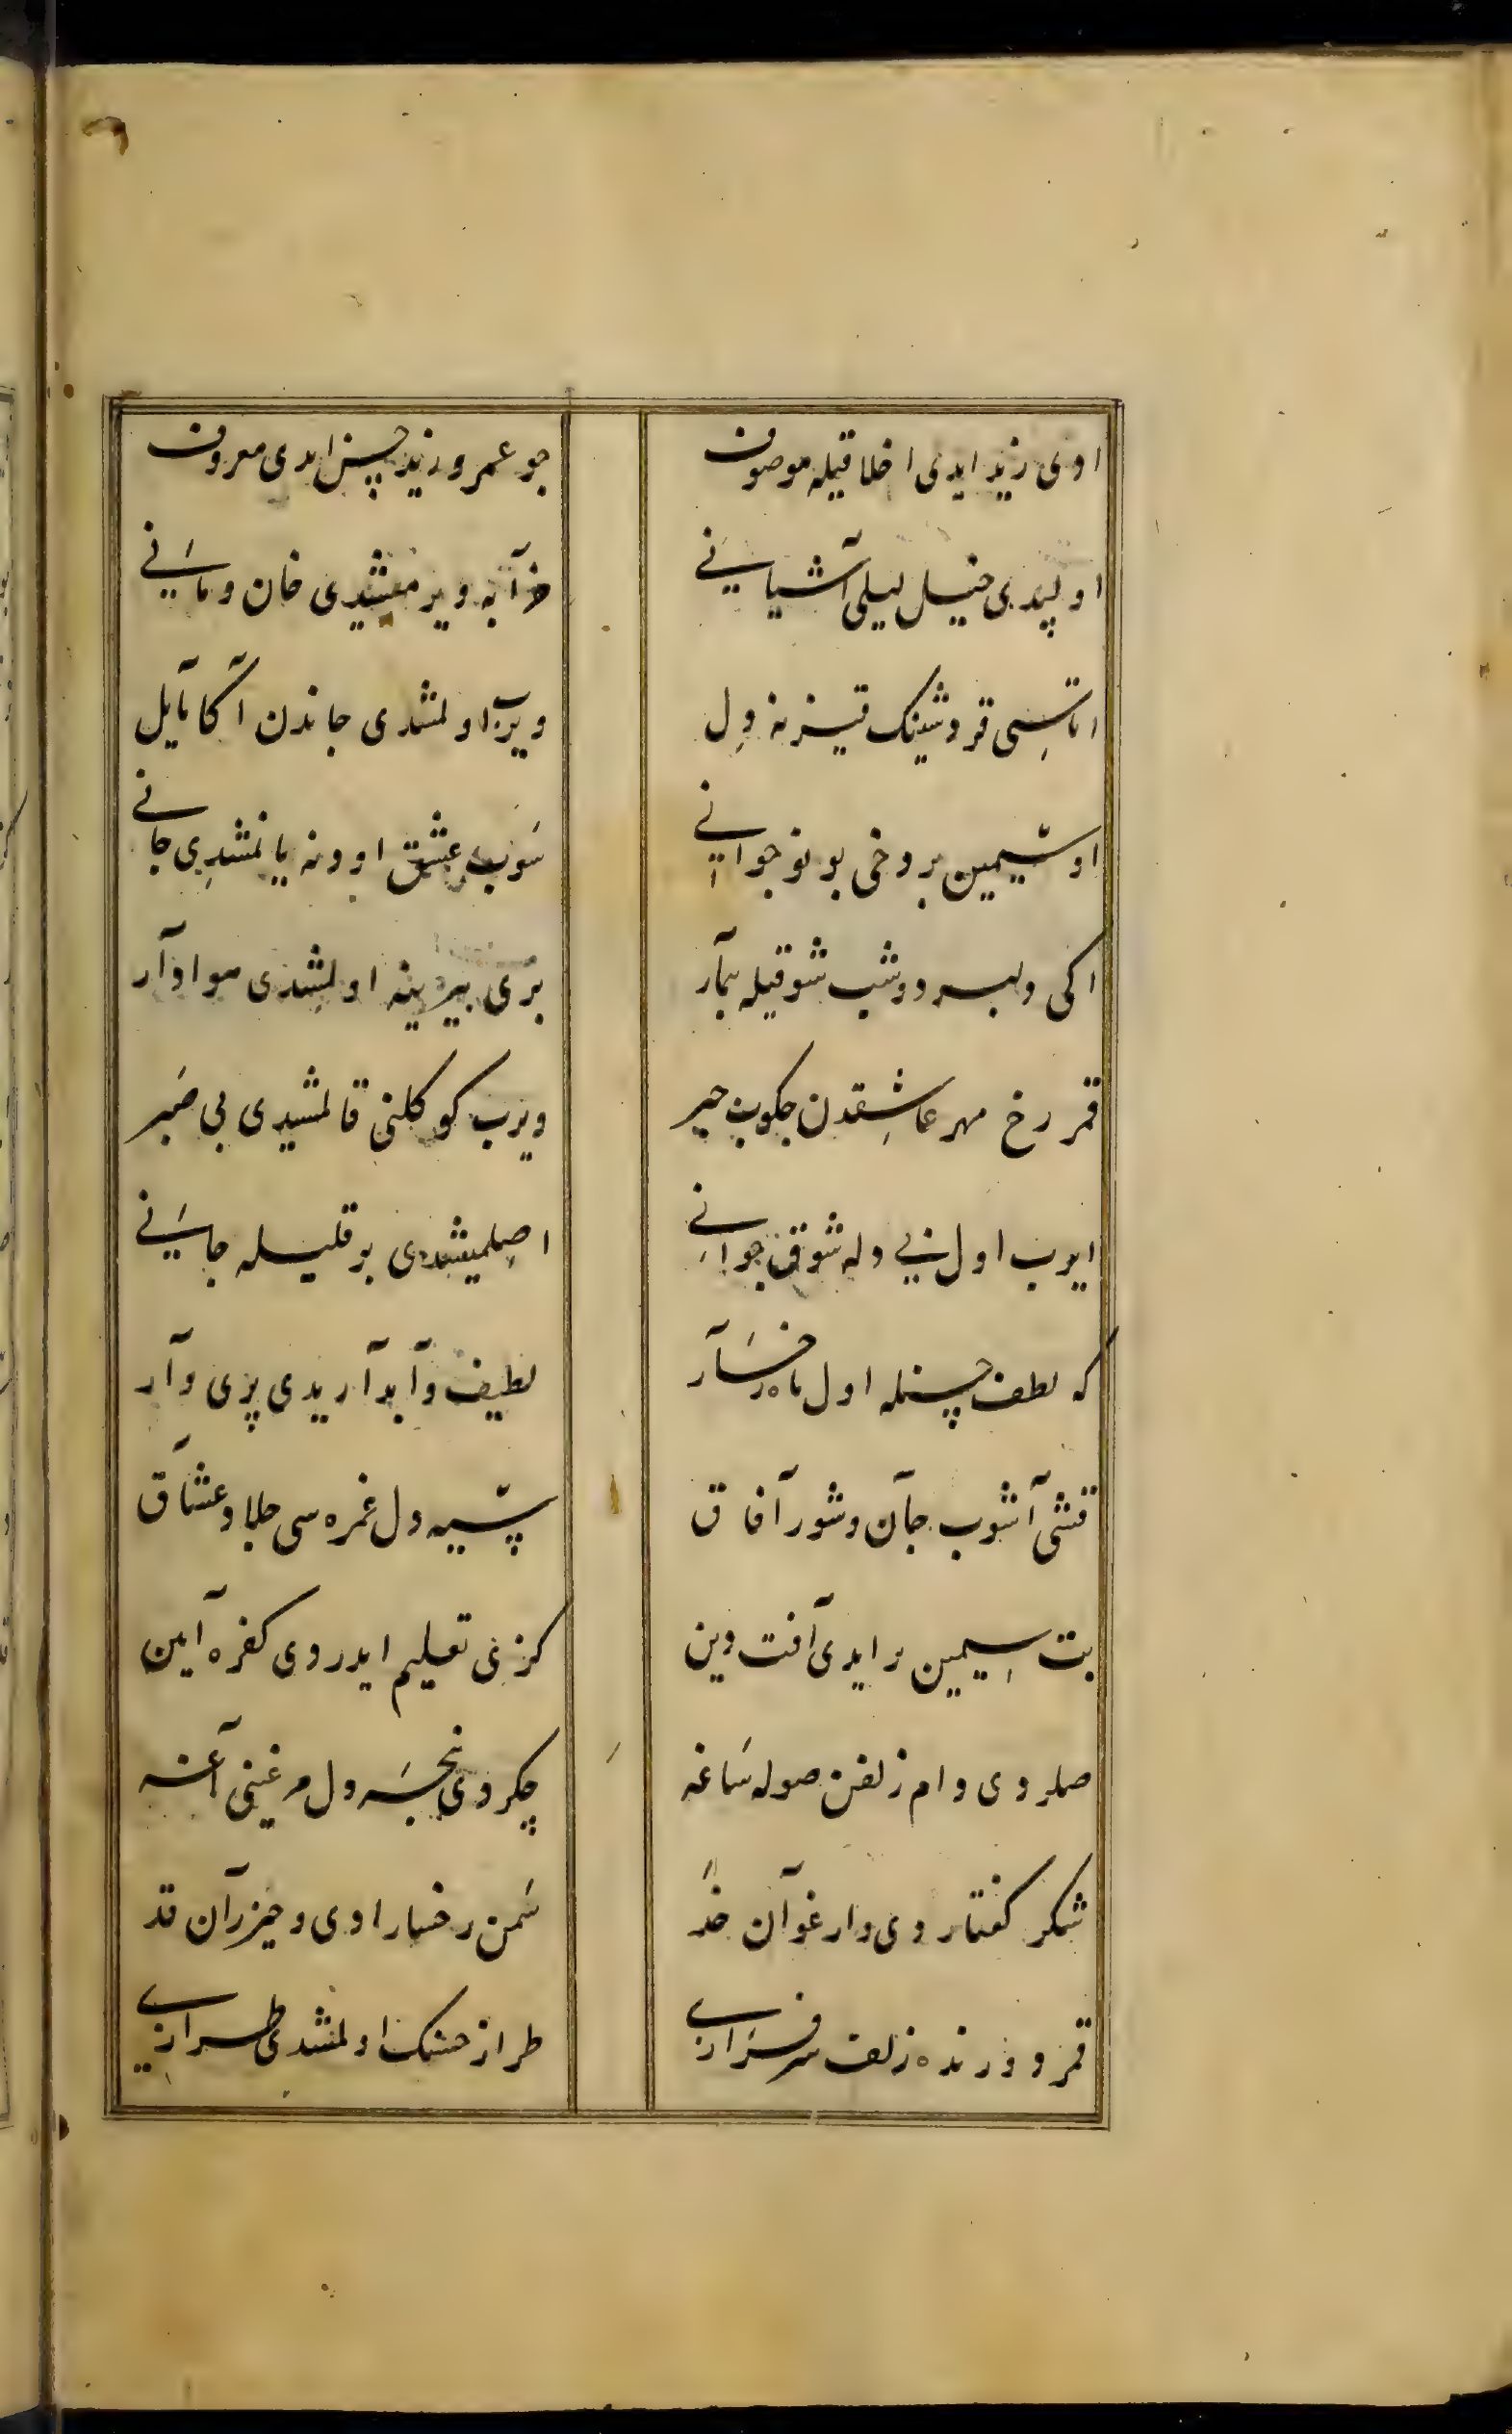 اوی زید ایدی اخلاقیله موصوف جو عمرو زید حسن ایدی معروف
اولیدی خیل لیلی آشیانی خرآبه ویرمشیدی خان و مانی
اتاسی قروشینک قیزنه دل ویرب اولمشدی جاندن آکا مآیل
او سیمین بر وخی بو نو جوانی سوب عشق اودنه یانمشدی جانی
اکی دلبر دوشب شوقیله بیمآر بری بیرینه اولمشدی هوادآر
قمر رخ مهر عاشقدن چکوب جبر ویرب کوکلنی قالمشیدی بی صبر
ایرب اول دله شوق جوانی اصلمیشدی بر قلیله جانی
که لطف حسنله اول ماه رخسآر لطیف وآبدآریدی پری وآر
قشی آشوب جآن و شور آفاق سیه دل غمزه سی جلاد عشآق
بت سیمین بر ایدی آفت دین کزی تعلیم ایدردی کفره آیین
صلردی دام زلفن صوله ساغه چکردی نجه دل مرغینی آغه
شکر گفتاردی وارغوآن خد سمن رخساراودی و خیزرآن قد
قمر وورنده زلف سرفرازی طراز حسنک اولمشدی طرازی